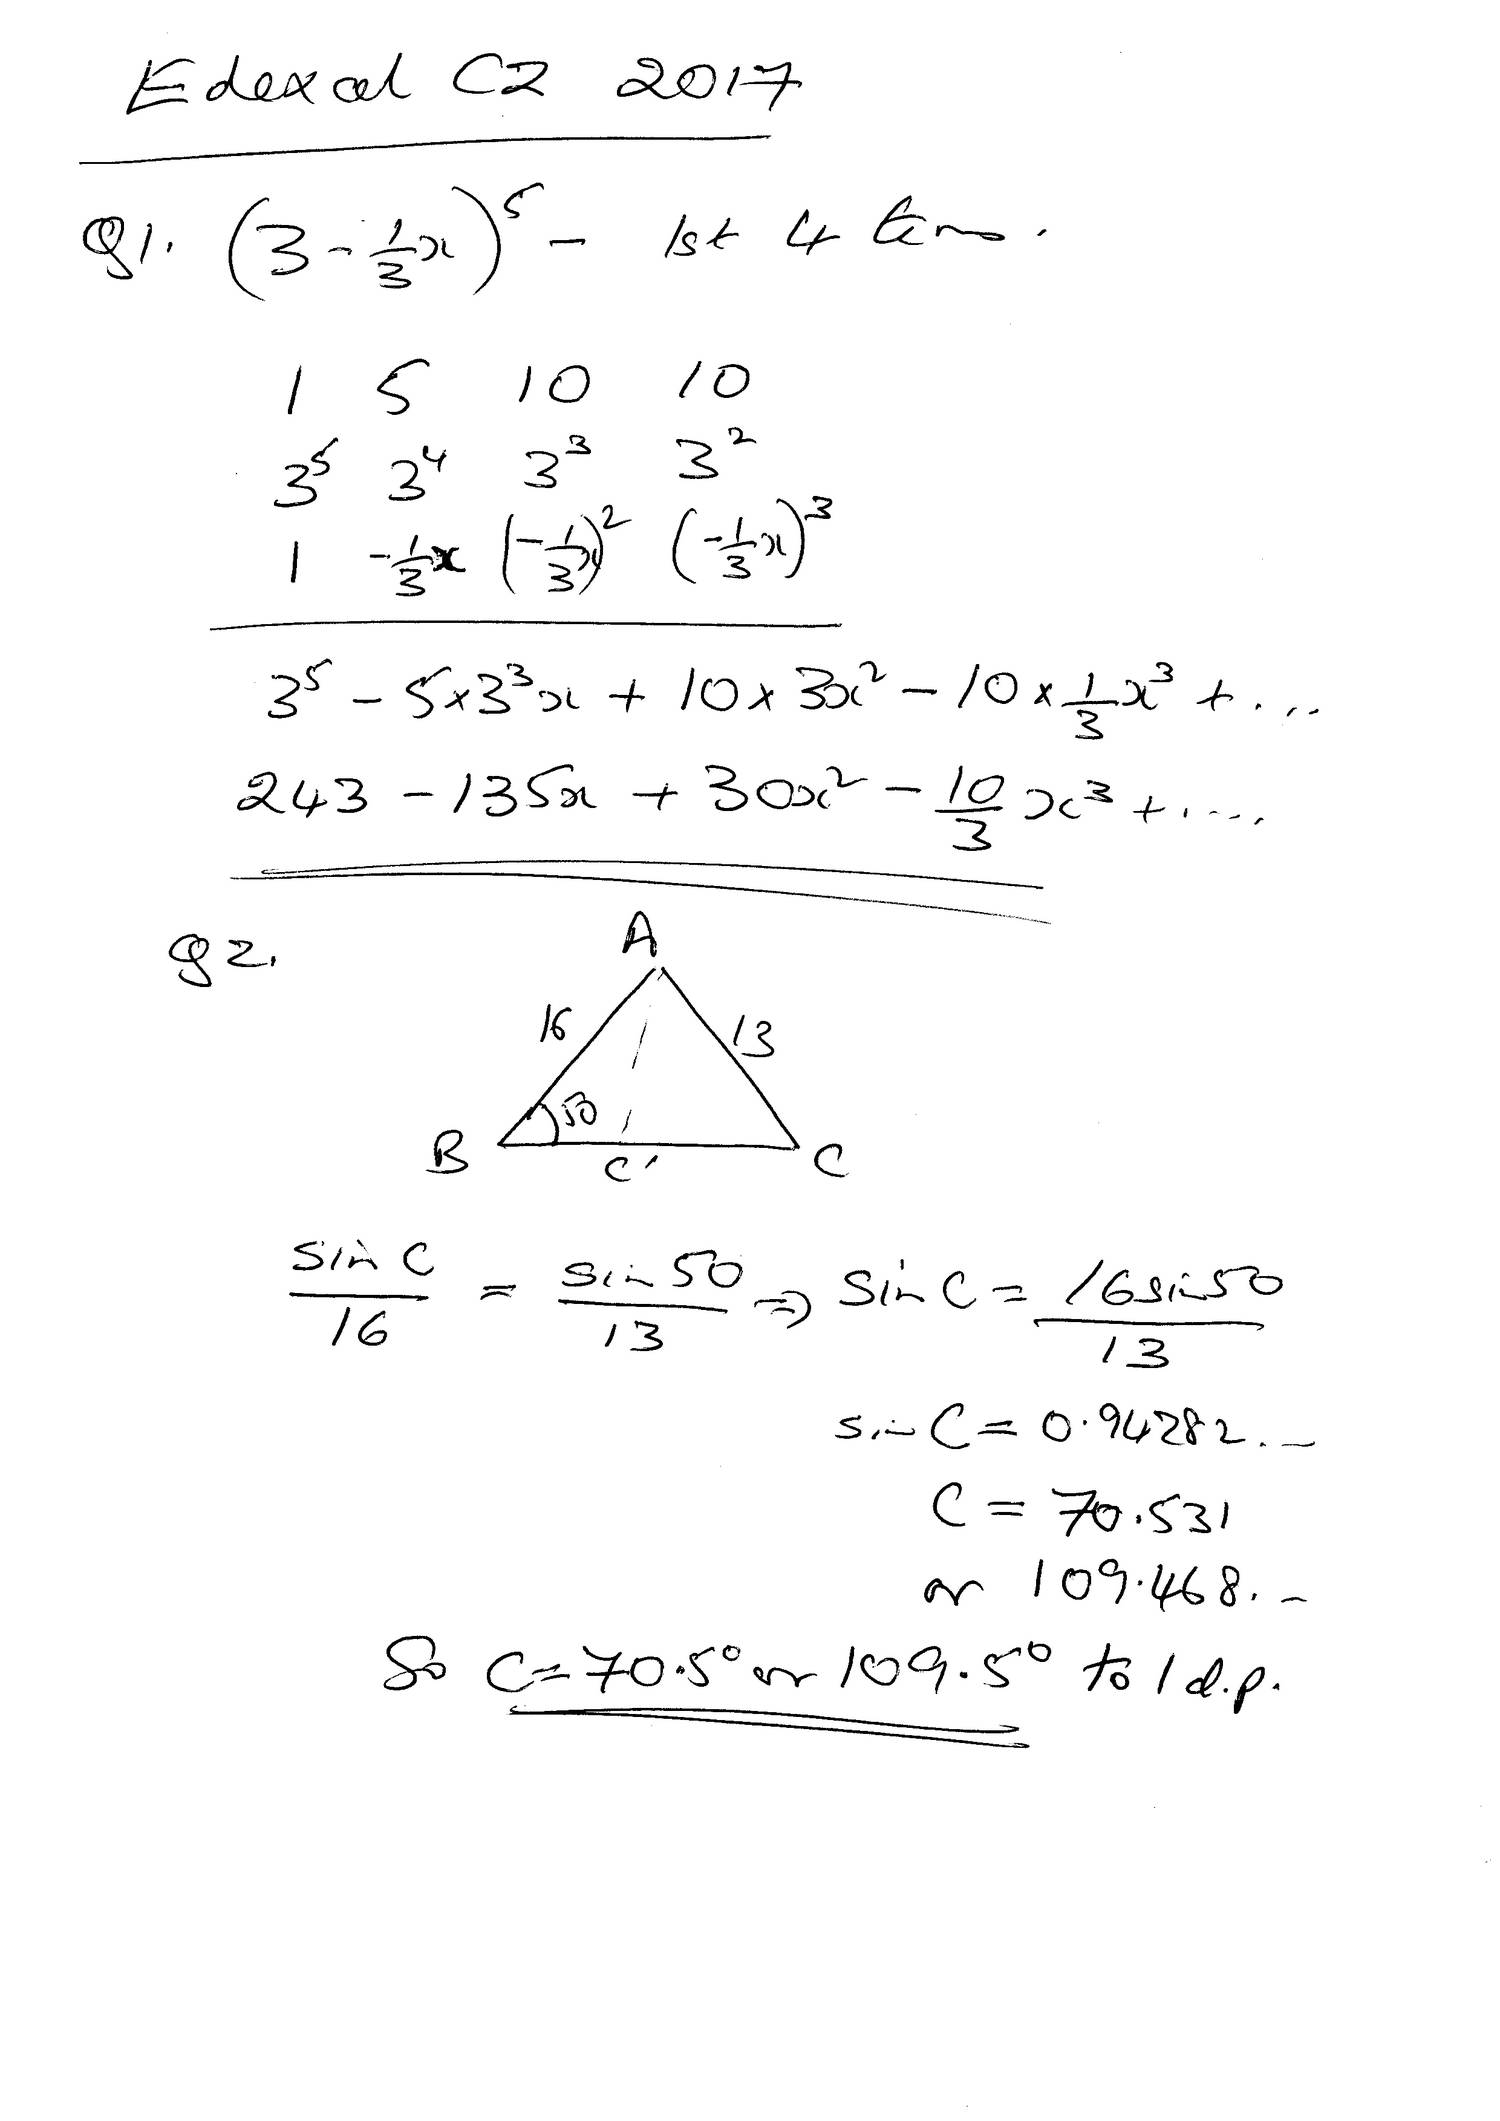 Edexcel C2 2017
Q1. (3 - 1/3 x)^5 - 1st 4 terms.
1 5 10 10
3^5 3^4 3^3 3^2
1 -1/3 x (-1/3 x)^2 (-1/3 x)^3
3^5 - 5×3^3 x + 10×3x^2 - 10×1/3 x^3 + ...
243 - 135x + 30x^2 - 10/3 x^3 + ....
Q2.
A
16 13
50
B C' C
sin C/16 = sin 50/13 ⇒ sin C = 16 sin 50/13
sin C = 0.94282..
C = 70.531
or 109.468..
So C = 70.5° or 109.5° to 1 d.p.